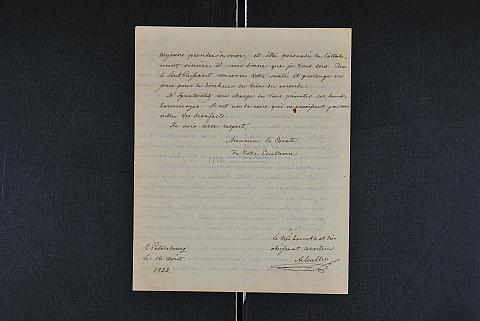 toujours prendre à moi, et être persuadé de l'attache-
ment sincère et sans borne que je Vous dois. Que
le Tout Puissant conserve Votre santé et prolonge vos
jours pour le bonheur de bien du monde.
Mr me charge de Vous présenter ses
hommages. Il est un de ceux qui
oublier Vos bienfaits.
Je suis avec respect,
Monsieur le Comte
De Votre Excellence
le très humble et très
obéissant serviteur
à Pétersbourg
le 16 Août.
1824.